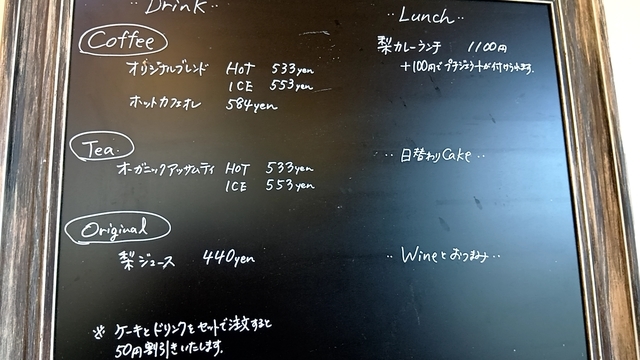 ‥Drink‥
Coffee
オリジナルブレンド HOT 533yen
ICE 553yen
ホットカフェオレ 584yen
Tea.
オーガニックアッサムティ HOT 533yen
ICE 553yen
Original
梨ジュース 440yen
※ ケーキとドリンクをセットで注文すると
50円割引きいたします。
‥Lunch‥
梨カレーランチ 1100円
+100円でプチジェラートが付けられます。
‥日替わりCake‥
‥Wineとおつまみ‥